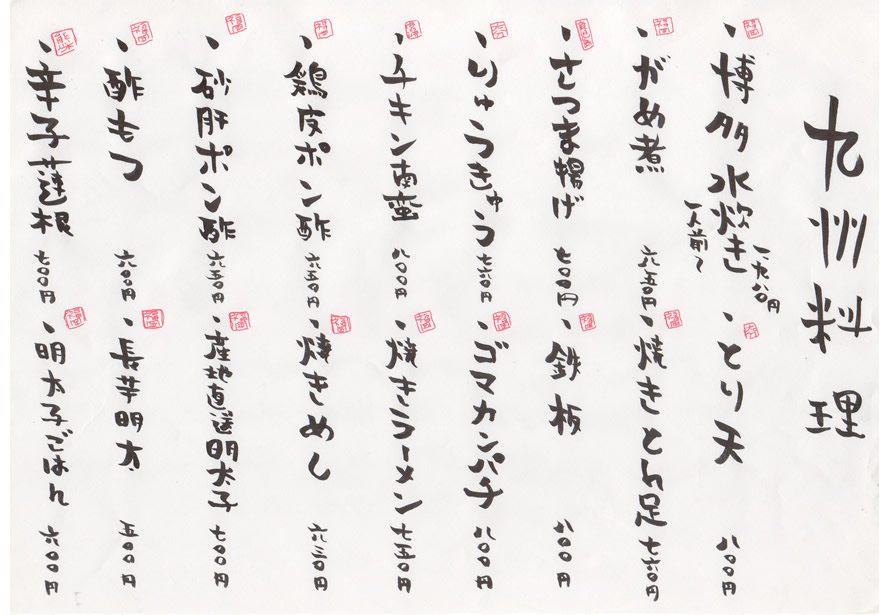 九州料理
福岡
・博多水炊き 一、九八〇円
一人前〜
大分
・とり天 八〇〇円
福岡
・がめ煮 六五〇円
福岡
・焼きとん足 七六〇円
鹿児島
・さつま揚げ 七〇〇円
福岡
・鉄板 八〇〇円
大分
・りゅうきゅう 七六〇円
福岡
・ゴマカンパチ 八〇〇円
宮崎
・チキン南蛮 八〇〇円
福岡
・焼きラーメン 七五〇円
福岡
・鶏皮ポン酢 六五〇円
福岡
・焼きめし 六三〇円
福岡
・砂肝ポン酢 六五〇円
福岡
・産地直送明太子 七〇〇円
福岡
・酢もつ 六〇〇円
福岡
・長芋明太 五〇〇円
熊本
・辛子蓮根 七〇〇円
福岡
・明太子ごはん 六〇〇円